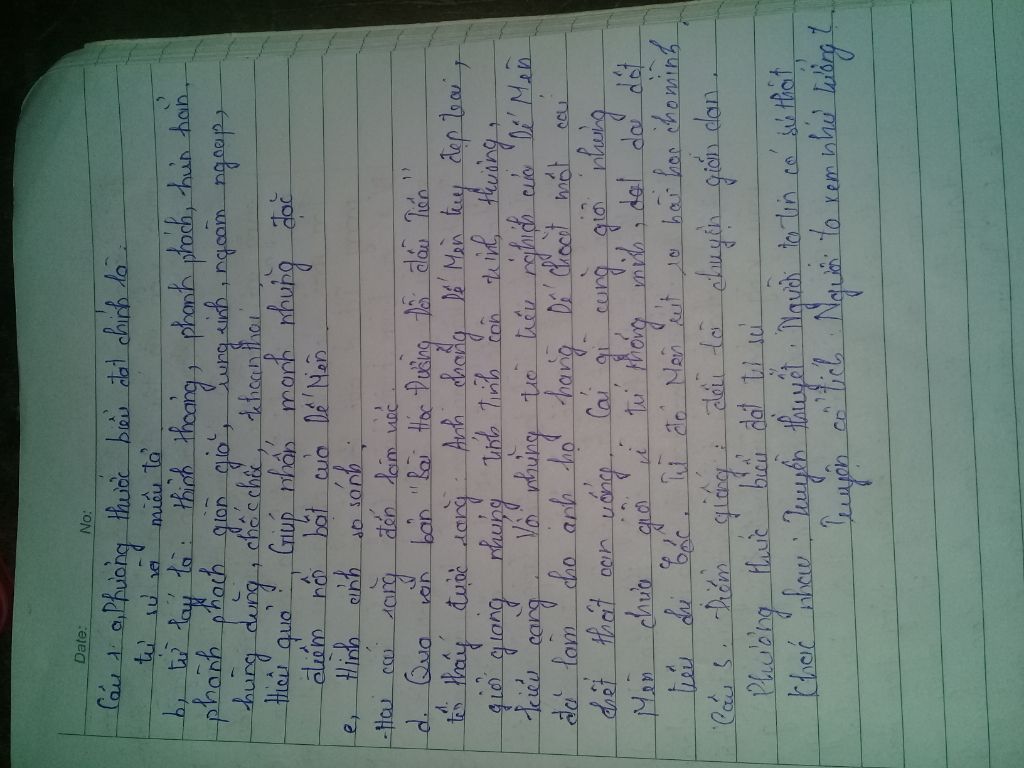 Date: No:
Câu 1: a, Phương thức biểu đạt chính là:
tự sự và miêu tả
b, từ láy là: thỉnh thoảng, phanh phách, hủn hẳn,
phành phạch, giòn giã, rung rinh, ngoàm ngoạp,
hùng dũng, chốc chốc, khoan thai
Hiệu quả: Giúp nhấn mạnh những đặc
điểm nổi bật của Dế Mèn
c, Hình ảnh so sánh:
- Hai cái răng đến làm việc.
d. Qua văn bản "Bài Học Đường Đời đầu Tiên"
ta thấy được rằng. Anh chàng Dế Mèn tuy đẹp trai,
giỏi giang nhưng tính tình còn
kiêu căng. Với những trò tiêu nghịch của Dế Mèn
đã làm cho anh họ hàng Dế Choắt một cái
chết thật oan uổng. Cái gì cũng giỏi nhưng
Mèn chưa giỏi vì tự phụng mình, dại dột
Từ đó Mèn rút ra bài học cho mình
Câu 3. Điểm giống: đều là chuyện gian dan.
Phương thức biểu đạt tự sự
Khác nhau: Truyền thuyết: Người ta tin có sự thật
Truyện cổ tích: Người ta xem như tưởng t